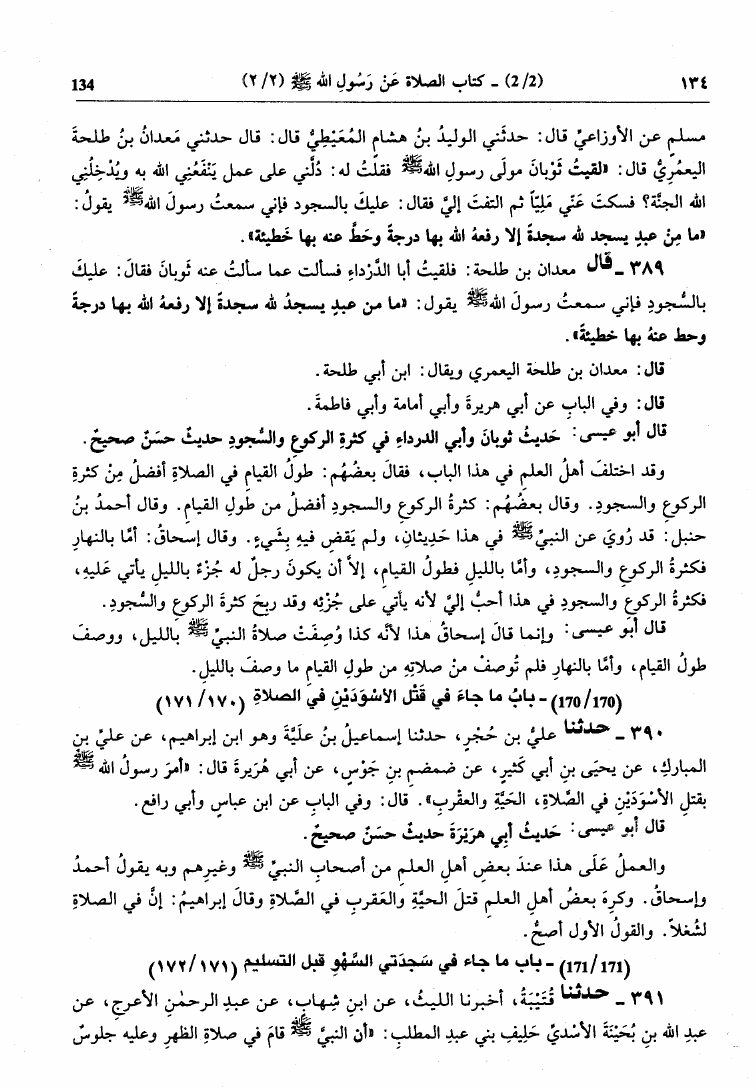 ١٣٤ (2/2) ـ كتاب الصلاة عَنْ رَسُولِ الله ﷺ (٢/٢) 134
مسلمٍ عن الأوزاعيِّ قال: حدثَني الوليدُ بنُ هشامٍ المُعَيْطِيُّ قال: قال حدثني مَعدانُ بنُ طلحةَ
اليعمُرِيُّ قال: «لقيتُ ثَوْبَانَ مولَى رسولِ اللهﷺ فقلتُ له: دُلَّني على عمل يَنْفَعُنِي الله به ويُدْخِلُنِي
الله الجنَّة؟ فسكتَ عَنِّي مَلِيّاً ثم التفتَ إليَّ فقال: عليكَ بالسجود فإني سمعتُ رسولَ اللهﷺ يقولُ:
«ما مِنْ عبدٍ يسجد لله سجدةً إلا رفعهُ الله بها درجةً وحَطَّ عنه بها خَطيئة».
٣٨٩ ـ قال معدان بن طلحة: فلقيتُ أبا الدَّرْداءِ فسألت عما سألتُ عنه ثَوبانَ فقالَ: عليكَ
بالسُّجودِ فإني سمعتُ رسولَ اللهﷺ يقول: «ما من عبدٍ يسجدُ لله سجدةً إلا رفعهُ الله بها درجةً
وحط عنهُ بها خطيئةً».
قال: معدان بن طلحة اليعمري ويقال: ابن أبي طلحة.
قال: وفي البابِ عن أبي هريرةَ وأبي أمامة وأبي فاطمةَ.
قال أبو عيسى: حَديثُ ثوبانَ وأبي الدرداءِ في كثرةِ الركوعِ والسُّجودِ حديثٌ حسَنٌ صحيحٌ.
وقد اختلفَ أهلُ العلم في هذا الباب، فقالَ بعضُهُم: طولُ القيام في الصلاةِ أفضلُ مِنْ كثرةِ
الركوعِ والسجودِ. وقال بعضُهُم: كثرةُ الركوعِ والسجودِ أفضلُ من طولِ القيام. وقال أحمدُ بنُ
حنبل: قد رُويَ عن النبيِّ ﷺ في هذا حَدِيثانِ، ولم يَقضِ فيهِ بِشَيءٍ. وقال إسحاقُ: أمَّا بالنهارِ
فكثرةُ الركوعِ والسجودِ، وأمَّا بالليلِ فطولُ القيام، إلاَّ أن يكونَ رجلٌ له جُزْءٌ بالليلِ يأتي عَليهِ،
فكثرةُ الركوعِ والسجودِ في هذا أحبُّ إليَّ لأنه يأتي على جُزْئِه وقد ربحَ كثرةَ الركوعِ والسُّجودِ.
قال أبو عيسى: وإنما قالَ إسحاقُ هذا لأنَّه كذا وُصِفَتْ صلاةُ النبيِّ ﷺ بالليل، ووصفَ
طولُ القيام، وأمَّا بالنهارِ فلم تُوصفْ منْ صلاتِهِ من طولِ القيامِ ما وصفَ بالليلِ.
(170/170) ـ بابُ ما جاءَ في قَتْل الأسْوَدَيْنِ في الصلاةِ (١٧١/١٧٠)
٣٩٠ ـ حدثنا عليُّ بن حُجْرٍ، حدثنا إسماعيلُ بنُ عُلَيَّةَ وهو ابن إبراهيم، عن عليِّ بنِ
المباركِ، عن يحيَى بنِ أبي كَثيرٍ، عن ضمضمِ بنِ جَوْسٍ، عن أبي هُرَيرةَ قال: «أمرَ رسولُ الله ﷺ
بقتلِ الأسْوَدَيْنِ في الصَّلاةِ، الحَيَّةِ والعقربِ». قال: وفي البابِ عن ابن عباسٍ وأبي رافع.
قال أبو عيسى: حَديثُ أبِي هرَيْرَةَ حديثٌ حسَنٌ صحيحٌ.
والعملُ عَلَى هذا عندَ بعضِ أهلِ العلم من أصحابِ النبيِّ ﷺ وغيرِهم وبه يقولُ أحمدُ
وإسحاقُ. وكرِهَ بعضُ أهلِ العلمِ قتلَ الحيَّةِ والعَقربِ في الصَّلاةِ وقالَ إبراهيمُ: إنَّ في الصلاةِ
لشُغلاً. والقولُ الأول أصحُّ.
(171/171) ـ باب ما جاء في سَجدَتي السَّهْوِ قبل التسليم (١٧٢/١٧١)
٣٩١ ـ حدثنا قُتَيْبَةُ، أخبرنا الليثُ، عن ابنِ شِهابٍ، عن عبدِ الرحمٰنِ الأعرجِ، عن
عبدِ الله بنِ بُحَيْنَةَ الأسْديِّ حَلِيفِ بني عبدِ المطلبِ: «أن النبيَّ ﷺ قامَ في صلاةِ الظهرِ وعليه جلوسٌ